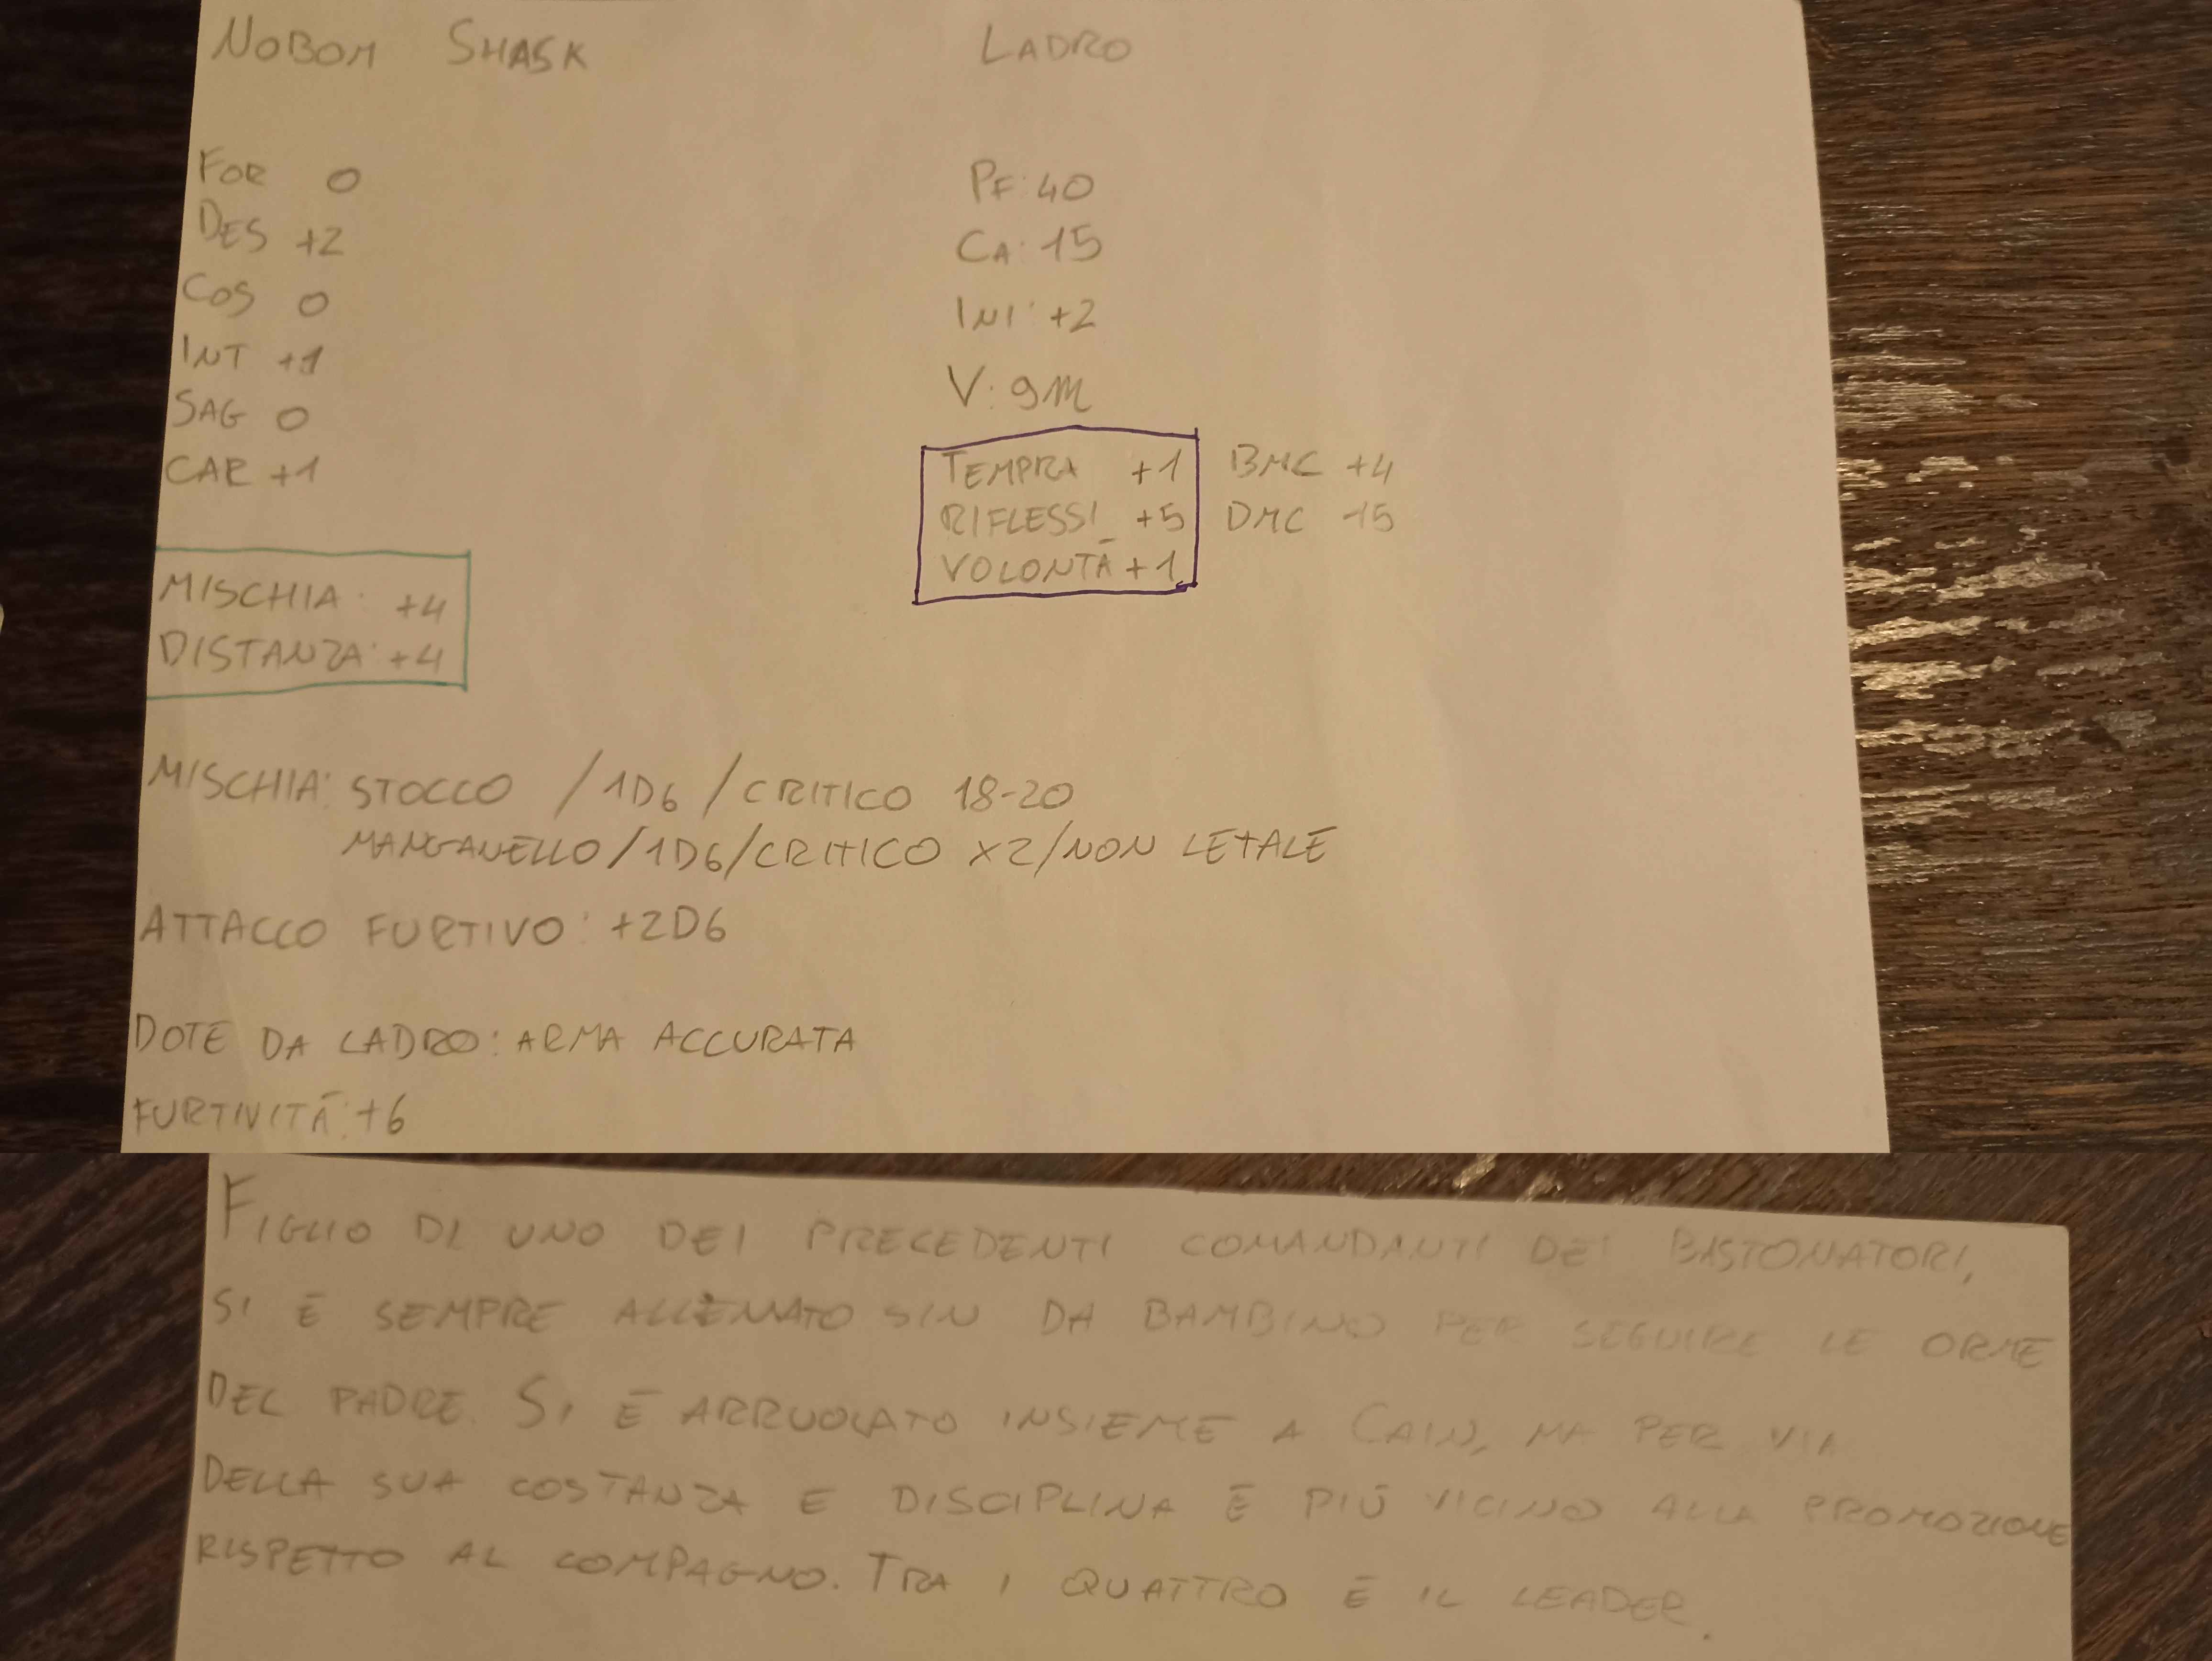 NOBOM SHASK
LADRO
FOR 0
DES +2
COS 0
INT +1
SAG 0
CAR +1
PF: 40
CA: 15
INI: +2
V: 9M
TEMPRA +1
RIFLESSI +5
VOLONTÀ +1
BMC +4
DMC 15
MISCHIA: +4
DISTANZA: +4
MISCHIA: STOCCO / 1D6 / CRITICO 18-20
MANGANELLO/1D6/CRITICO X2/NON LETALE
ATTACCO FURTIVO: +2D6
DOTE DA LADRO: ARMA ACCURATA
FURTIVITÀ: +6
FIGLIO DI UNO DEI PRECEDENTI COMANDANTI DEI BASTONATORI,
SI È SEMPRE ALLENATO SIN DA BAMBINO PER SEGUIRE LE ORME
DEL PADRE. SI È ARRUOLATO INSIEME A CAIN, MA PER VIA
DELLA SUA COSTANZA E DISCIPLINA È PIÙ VICINO ALLA PROMOZIONE
RISPETTO AL COMPAGNO. TRA I QUATTRO È IL LEADER.